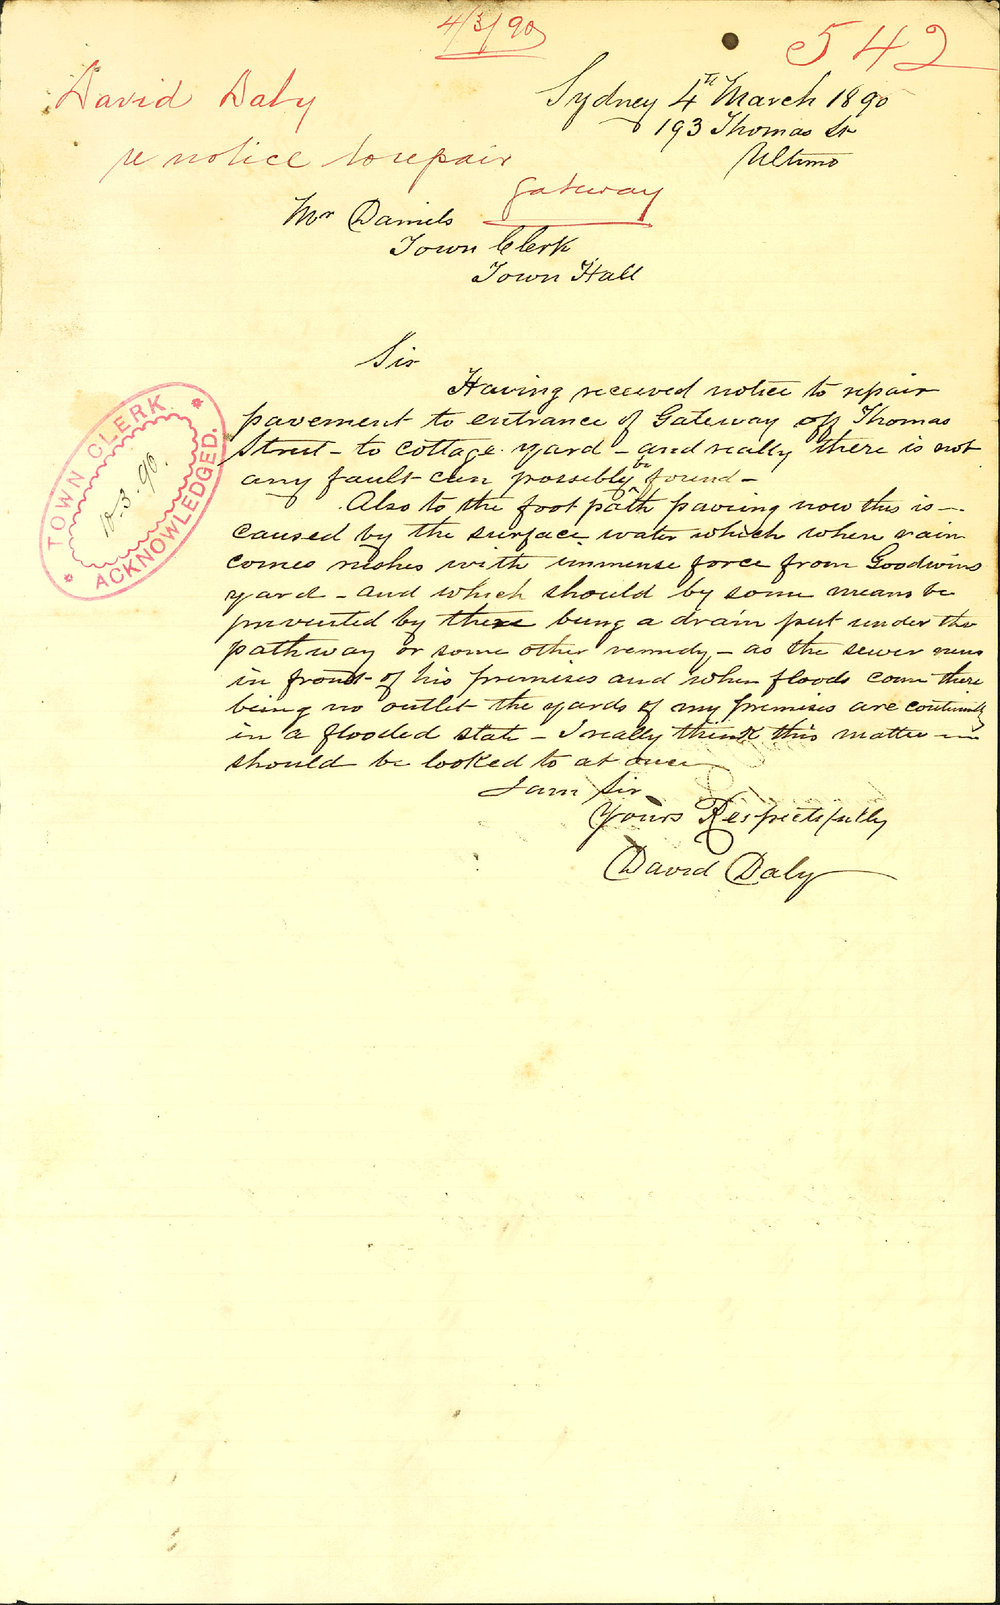 4/3/90
542
David Daly
re notice to repair
gateway
Sydney 4th March 1890
193 Thomas St
Ultimo
Mr Daniels
Town Clerk
Town Hall
Sir
Having received notice to repair
pavement to entrance of Gateway off Thomas
Street - to cottage yard - and really there is not
any fault can possibly be found -
Also to the foot path paving now this is -
caused by the surface water which when rain
comes rushes with immense force from Goodwins
yard - and which should by some means be
prevented by there being a drain put under the
pathway or some other remedy - as the sewer runs
in front of his premises and when floods come there
being no outlet the yards of my premises are continually
in a flooded state - I really think this matter
should be looked to at once
I am Sir
Yours Respectfully
David Daly
TOWN CLERK.
10.3.90.
ACKNOWLEDGED.